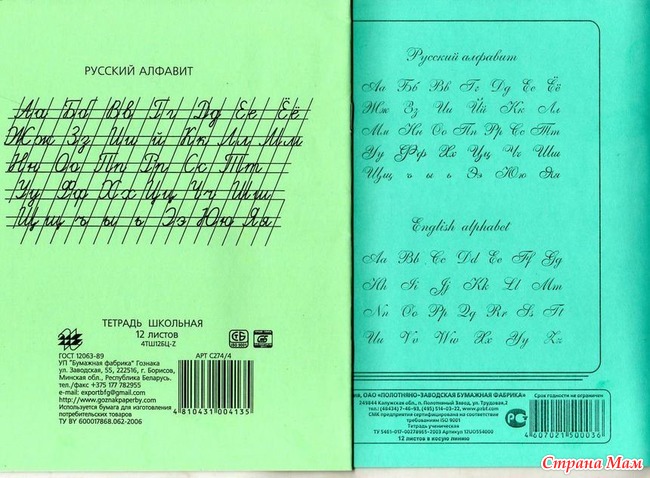 РУССКИЙ АЛФАВИТ
Аа Бб Вв Гг Дд Ее Ёё
Жж Зз Ии Йй Кк Лл Мм
Нн Оо Пп Рр Сс Тт
Уу Фф Хх Цц Чч Шш
Щщ ъ ы ь Ээ Юю Яя
ТЕТРАДЬ ШКОЛЬНАЯ
12 листов
4ТШ12БЦ-Z
ГОСТ 12063-89
УП "Бумажная фабрика" Гознака
ул. Заводская, 55, 222516, г. Борисов,
Минская обл., Республика Беларусь.
тел./факс +375 177 782955
e-mail: exportbfg@gmail.com
www.goznakpaperby.com
Используется бумага для изготовления
потребительских товаров
ТУ BY 600017868.062-2006
АРТ С274/4
4 810431 004135
Русский алфавит
Аа Бб Вв Гг Дд Ее Ёё
Жж Зз Ии Йй Кк Лл
Мм Нн Оо Пп Рр Сс Тт
Уу Фф Хх Цц Чч Шш
Щщ ъ ы ь Ээ Юю Яя
English alphabet
Aa Bb Cc Dd Ee Ff Gg
Hh Ii Jj Kk Ll Mm
Nn Oo Pp Qq Rr Ss Tt
Uu Vv Ww Xx Yy Zz
ОАО «ПОЛОТНЯНО-ЗАВОДСКАЯ БУМАЖНАЯ ФАБРИКА»
249844 Калужская обл., п. Полотняный Завод, ул. Трудовая, 2
www.pzbf.com
СМК предприятия сертифицирована на соответствие
требованиям ISO 9001
Тетрадь ученическая
12 листов в косую линию
Срок годности не ограничен
4 607021 500036
Страна Мам